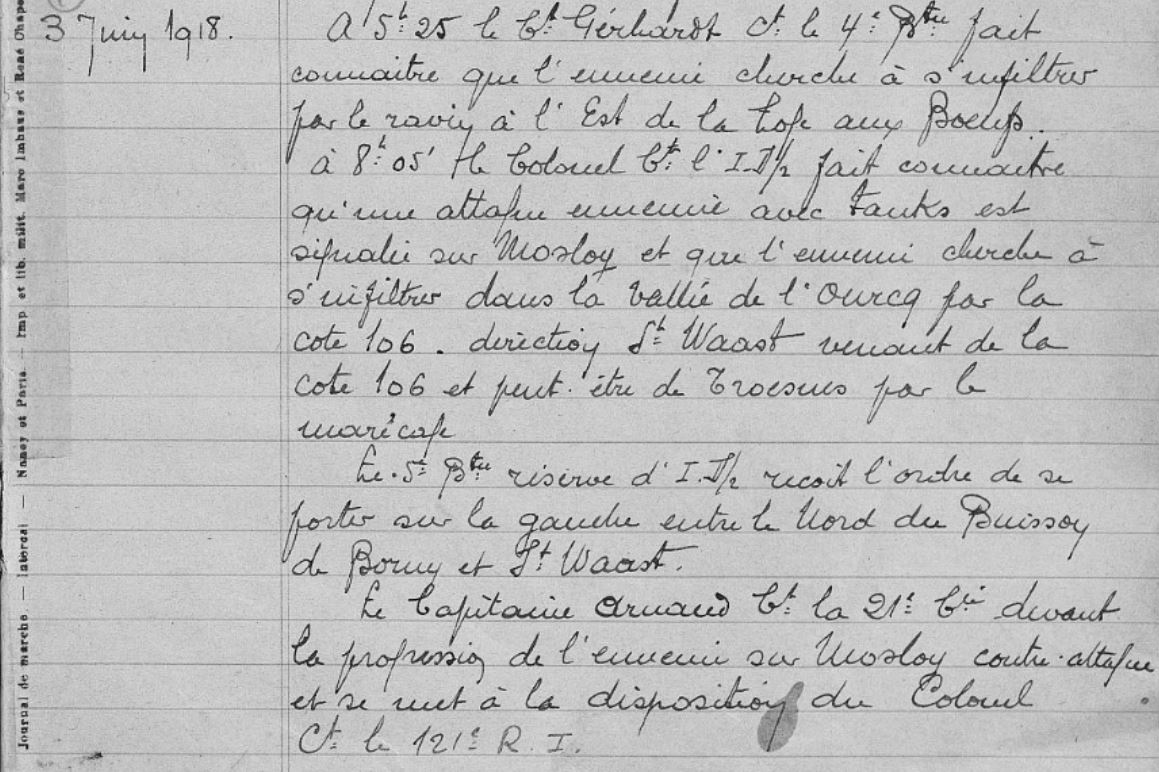 3 Juin 1918.
A 5h 25 le Ct Gérhardt Ct le 4e Bton fait
connaitre que l'ennemi cherche à s'infiltrer
par le ravin à l'Est de la Loge aux Boeufs.
à 8h 05' le Colonel Ct l'I.D/2 fait connaitre
qu'une attaque ennemie avec tanks est
signalée sur Mosloy et que l'ennemi cherche à
s'infiltrer dans la vallée de l'Ourcq par la
cote 106. direction St Waast venant de la
cote 106 et peut-être de Troesnes par le
marécage
Le 5e Bton réserve d'I.D/2 reçoit l'ordre de se
porter sur la gauche entre le Nord du Buisson
de Borny et St Waast.
Le Capitaine Arnaud Ct la 21e Cie devant
la progression de l'ennemi sur Mosloy contre-attaque
et se met à la disposition du Colonel
Ct le 121e R.I.
Journal de marche. — Intercal — Nancy et Paris — Imp et lib. milit. Marc Imhaus et René Chape